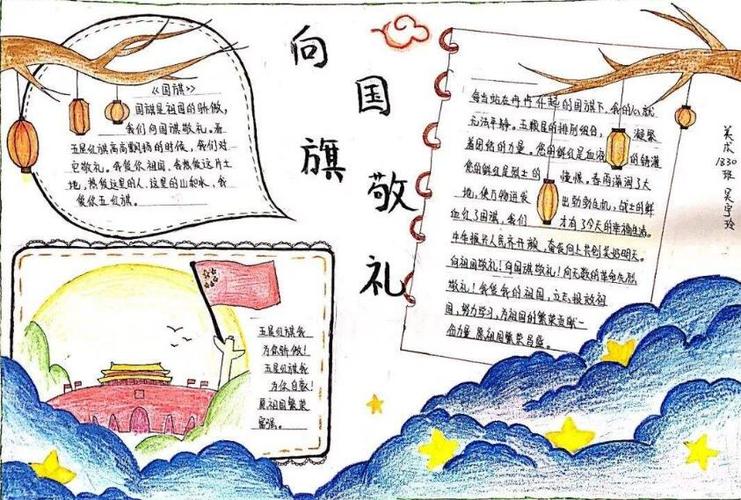 向国旗敬礼
《国旗》
国旗是祖国的骄傲，
我们向国旗敬礼。看
五星红旗高高飘扬的时候，我们对
它敬礼。我爱你祖国，我热爱这片土
地，热爱这里的人，这里的山和水，我
爱你五红旗。
五星红旗我
为你骄傲！
五星红旗我
为你自豪！
愿祖国繁荣
富强。
每当站在冉冉升起的国旗下，我的心就
无法平静。五颗星的特别组合，凝聚
着团结的力量。您的鲜红是血液的铸灌
您的鲜红是烈士的憧憬。春雨滋润了大
地，使万物迸发出勃勃生机，战士的鲜
血红了国旗，我们才有了今天的幸福生活。
少年报 人民齐开放，奋发向上共创美好明天。
向祖国敬礼！向国旗敬礼！向无数的革命先烈
敬礼！我爱我的祖国，立志报效祖
国，努力学习，为祖国的繁荣贡献一
份力量，愿祖国繁荣昌盛。
1830班 吴宇玲